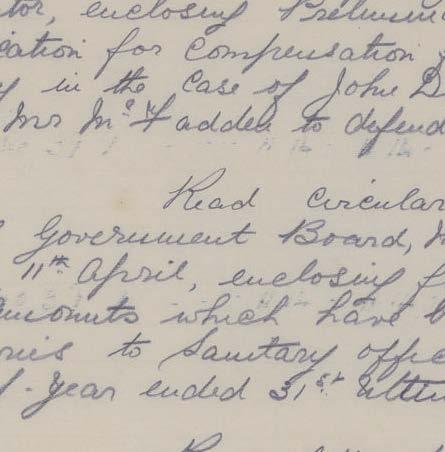 tor, enclosing Prelimin
ication for Compensation
y in the Case of John D
Mr McFadden to defend
Read circular
l Government Board,
11th April, enclosing f
amounts which have b
ries to Sanitary offic
f-Year ended 31st Ulti